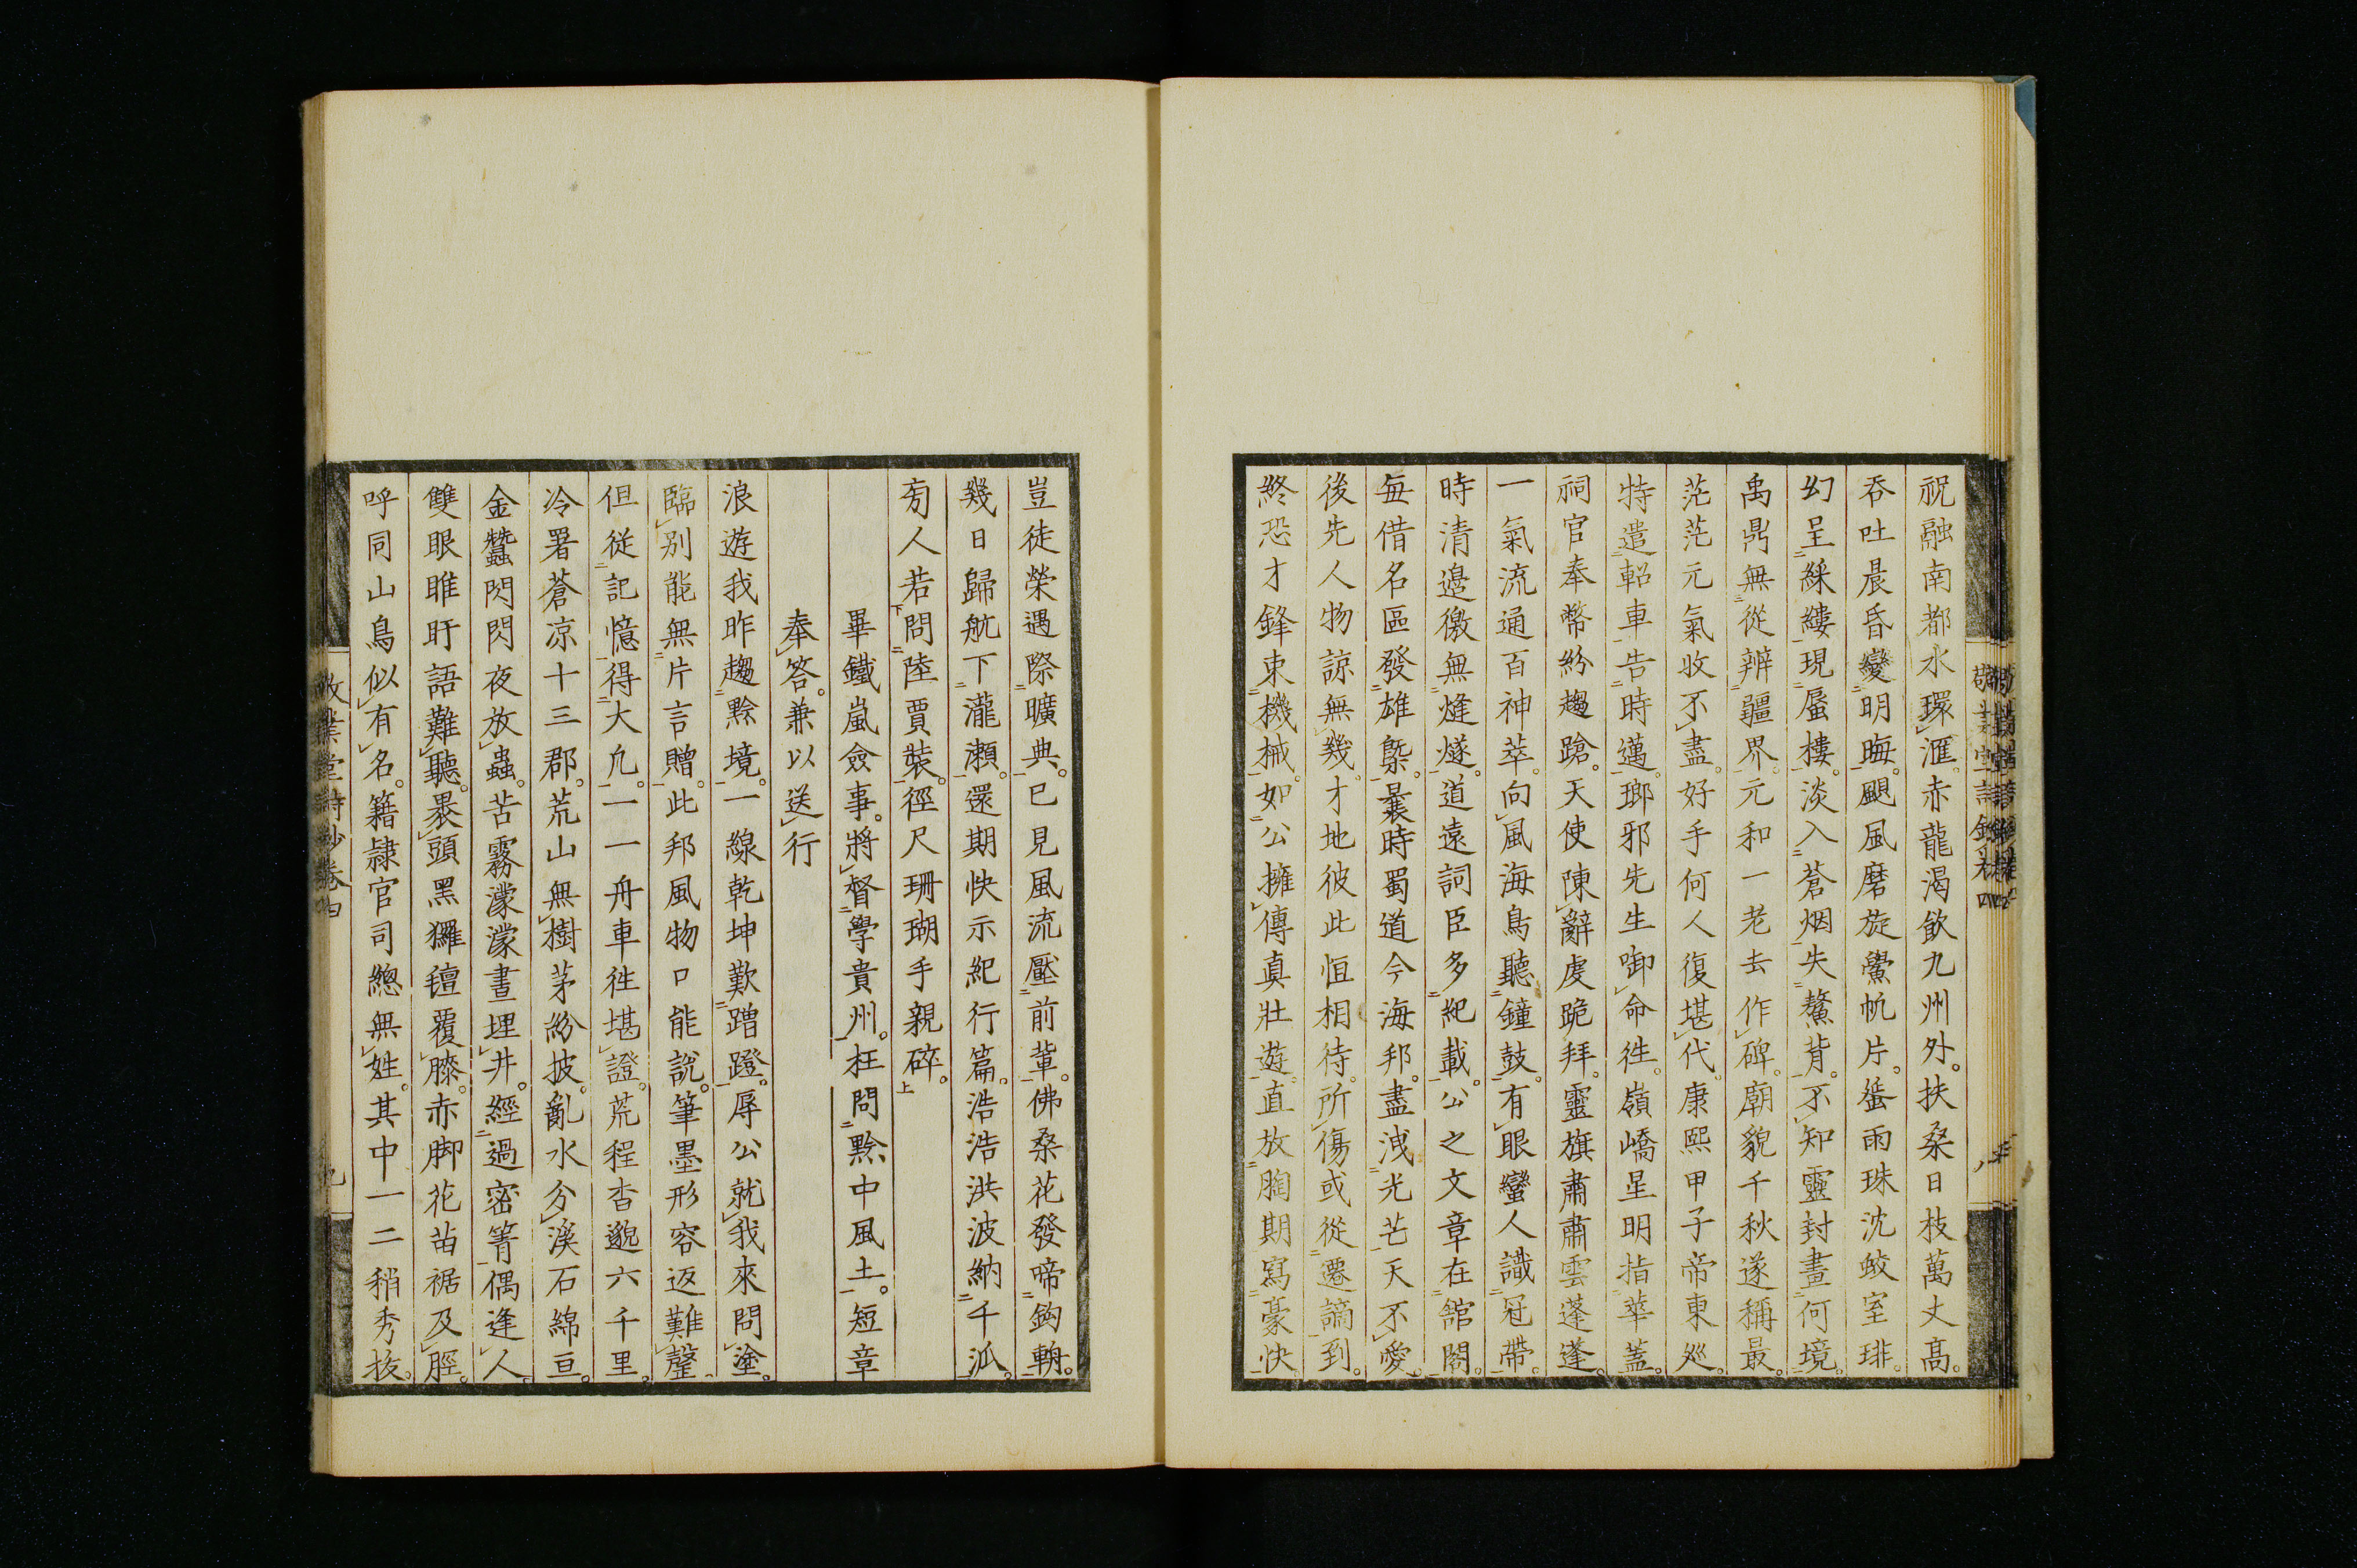 祝融南都水環滙赤龍渴飲九州外。扶桑日枝萬丈髙。
吞吐晨昏變明晦。颶風磨旋鱟帆片。蜑雨珠沈蛟室琲。
幻呈綵縷現蜃樓。淡入蒼烟失鰲背。不知靈封畫何境。
禹鼎無從辨疆界。元和一老去作碑。廟貌千秋遂稱最。
茫茫元氣收不盡。好手何人復堪代。康熙甲子帝東廵。
特遣軺車告時邁。瑯邪先生啣命徃。嶺嶠星明指華蓋。
祠官奉幣紛趨蹌。天使陳辭虔跪拜。靈旗肅肅雲蓬蓬。
一氣流通百神萃。向風海鳥聽鐘鼓。有眼蠻人識冠帶。
時清邉徼無烽燧。道遠詞臣多紀載。公之文章在館閣。
每借名區發雄槩。曩時蜀道今海邦。盡洩光芒天不愛。
後先人物諒無幾。才地彼此恒相待。所傷或從遷謫到。
終恐才鋒束機械。如公擁傳真壯遊。直放胸期寫豪快。
豈徒榮遇際曠典。已見風流壓前輩。佛桑花發啼鉤輈。
幾日歸航下瀧瀬。還期快示紀行篇。浩浩洪波納千派。
旁人若問陸賈裝。徑尺珊瑚手親碎。
畢鐵嵐僉事。將督學貴州。枉問黔中風土。短章
奉答。兼以送行
浪遊我昨趨黔境。一線乾坤歎蹭蹬。辱公就我來問塗。
臨別能無片言贈。此邦風物口能說。筆墨形容返難罄。
但從記憶得大凡。一一舟車徃堪證。荒程杳邈六千里。
冷署蒼凉十三郡。荒山無樹茅紛披。亂水分溪石綿亘。
金蠶閃閃夜放蟲。苦霧濛濛晝埋井。經過密箐偶逢人。
雙眼睢盱語難聽。褁頭黑玀氊覆膝。赤脚花苗裾及脛。
呼同山鳥似有名。籍隷官司總無姓。其中一二稍秀抜。
敬業堂詩鈔卷四
九